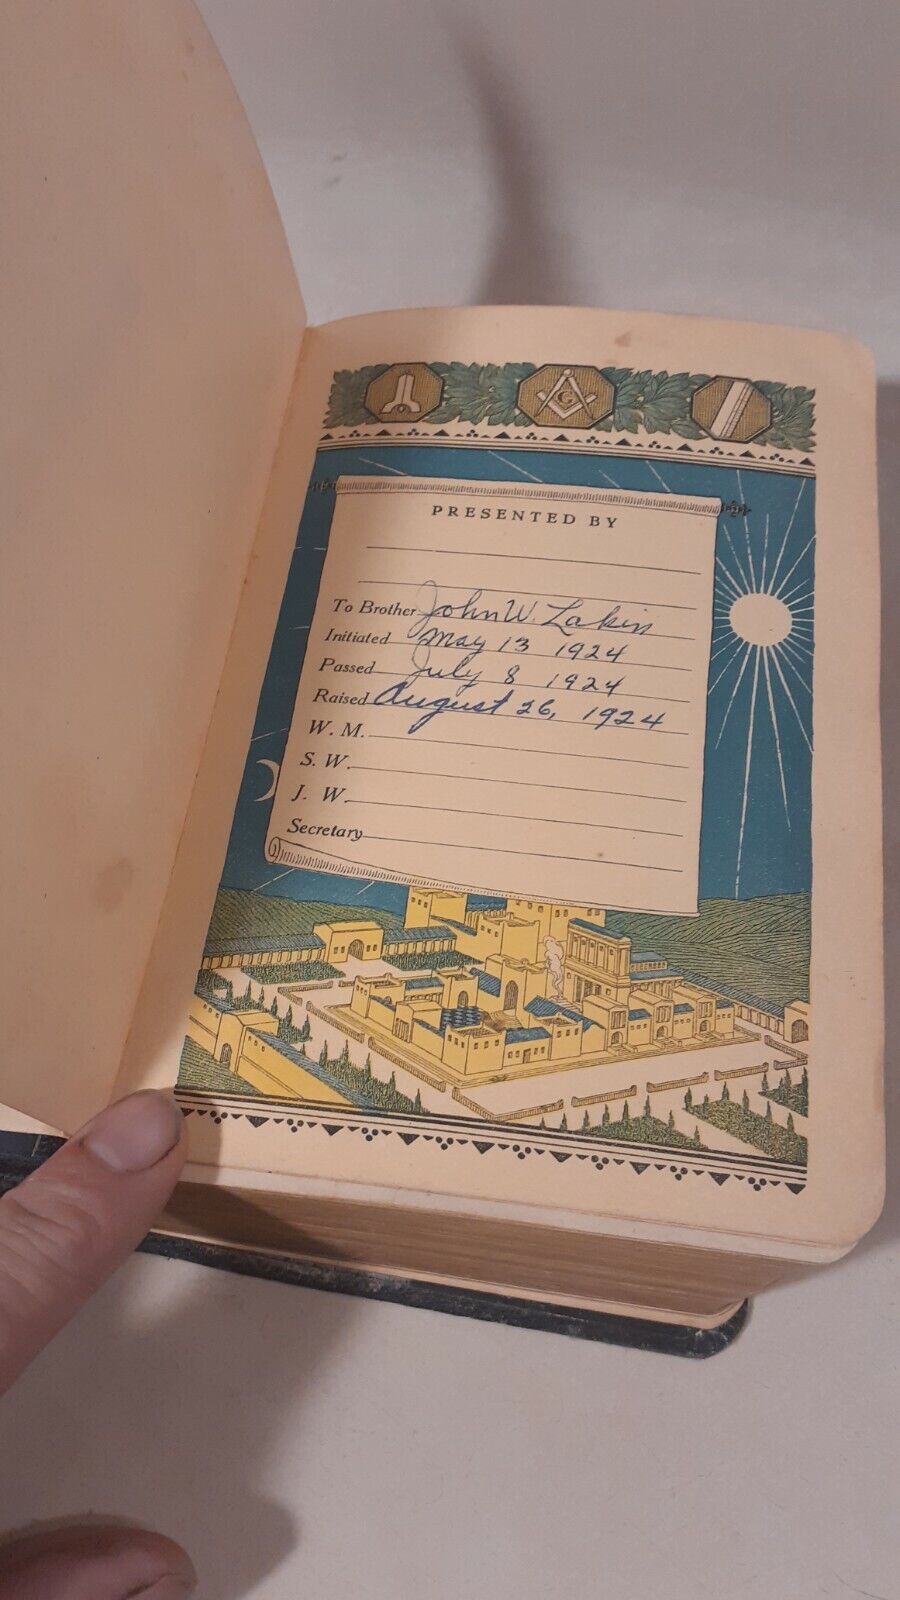 G
PRESENTED BY
To Brother John W. Lakin
Initiated May 13 1924
Passed July 8 1924
Raised August 26, 1924
W. M.
S. W.
J. W.
Secretary